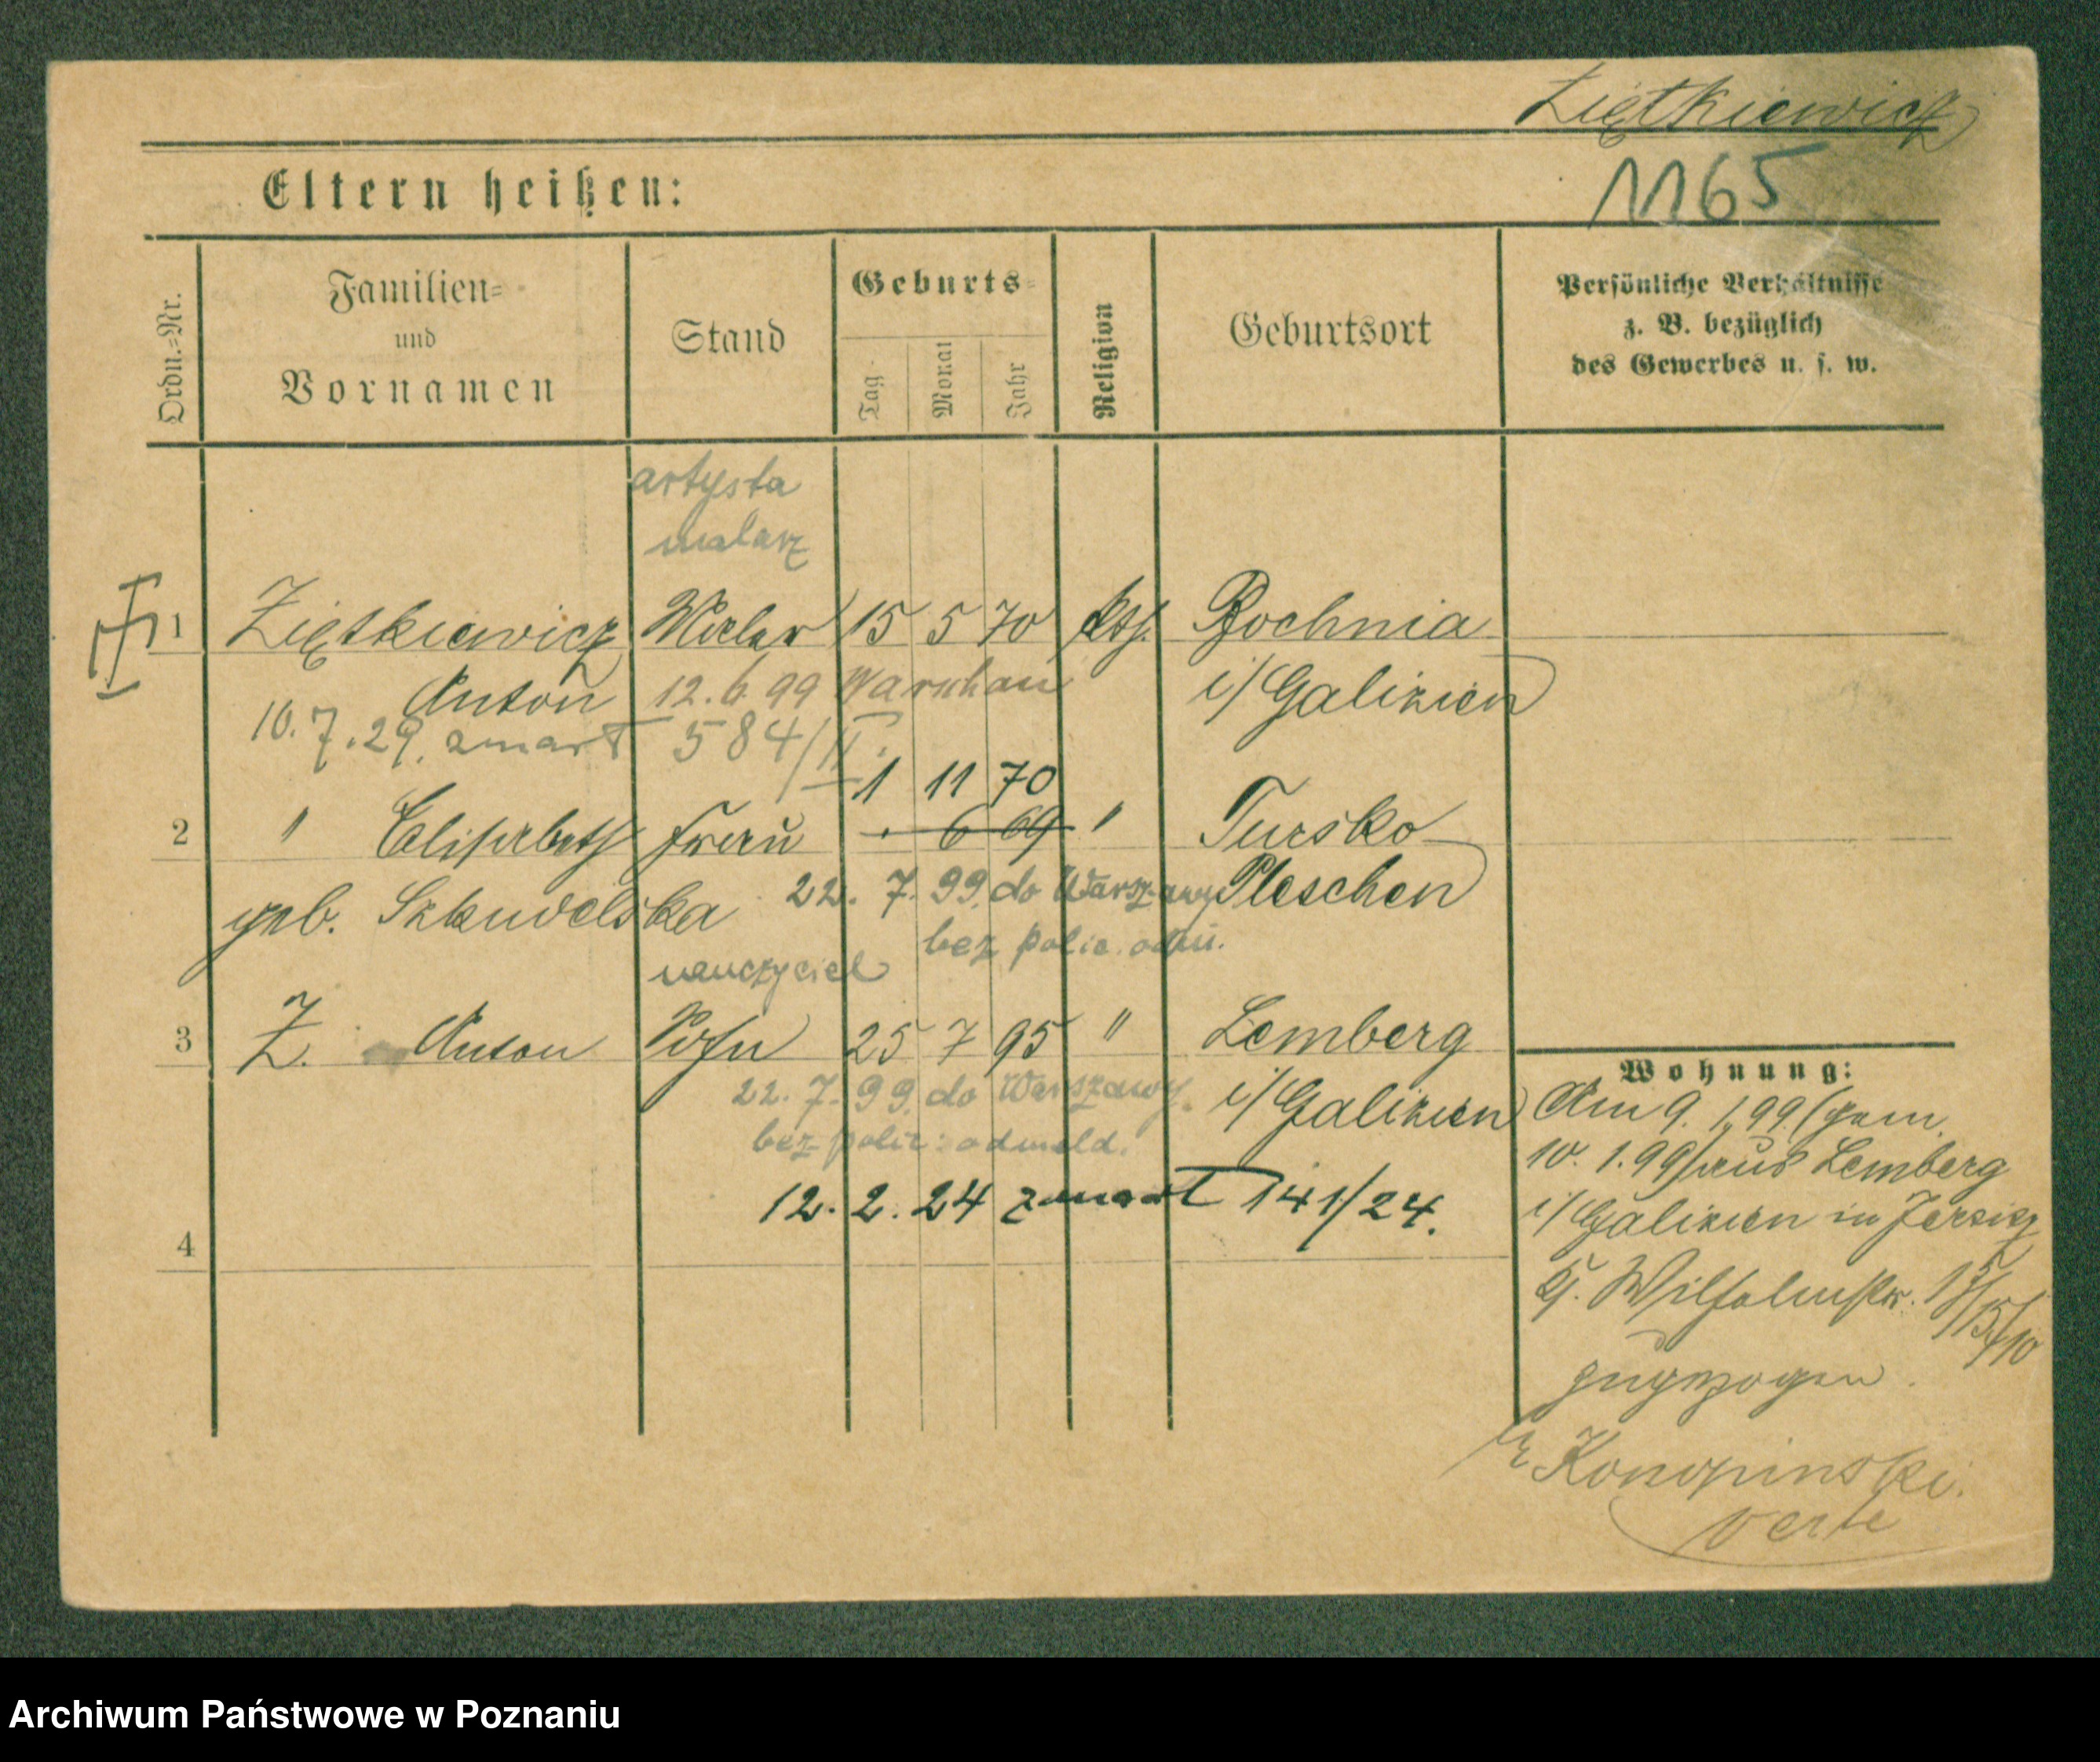 Ziętkiewicz
Eltern heißen:
1165
Ordn.-Nr.
Familien-
und
Vornamen
Stand
Geburts-
Tag
Monat
Jahr
Religion
Geburtsort
Persönliche Verhältnisse
z. B. bezüglich
des Gewerbes u. s. w.
artysta
malarz
1 Ziętkiewicz Maler 15 5 70 kth. Bochnia
Anton 12.6.99 Warschau i/Galizien
10.7.29. zmarł 584/II.
1 11 70
2 " Elisabeth Frau 6 69 " Tursko
22. 7. 99. do Warszawy Pleschen
geb. Szkudelska
bez polic. odm.
nauczyciel
3 Z. Anton Sohn 25 7 95 " Lemberg
22. 7. 99. do Warszawy i/Galizien
bez polic: odmeld.
12. 2. 24 zmarł 141/24.
4
Wohnung:
Am 9. 1.99. (gem.
10. 1. 99) aus Lemberg
i/Galizien in Jersitz
Wilhelmstr.
zugezogen.
Konopinski.
verte
Archiwum Państwowe w Poznaniu